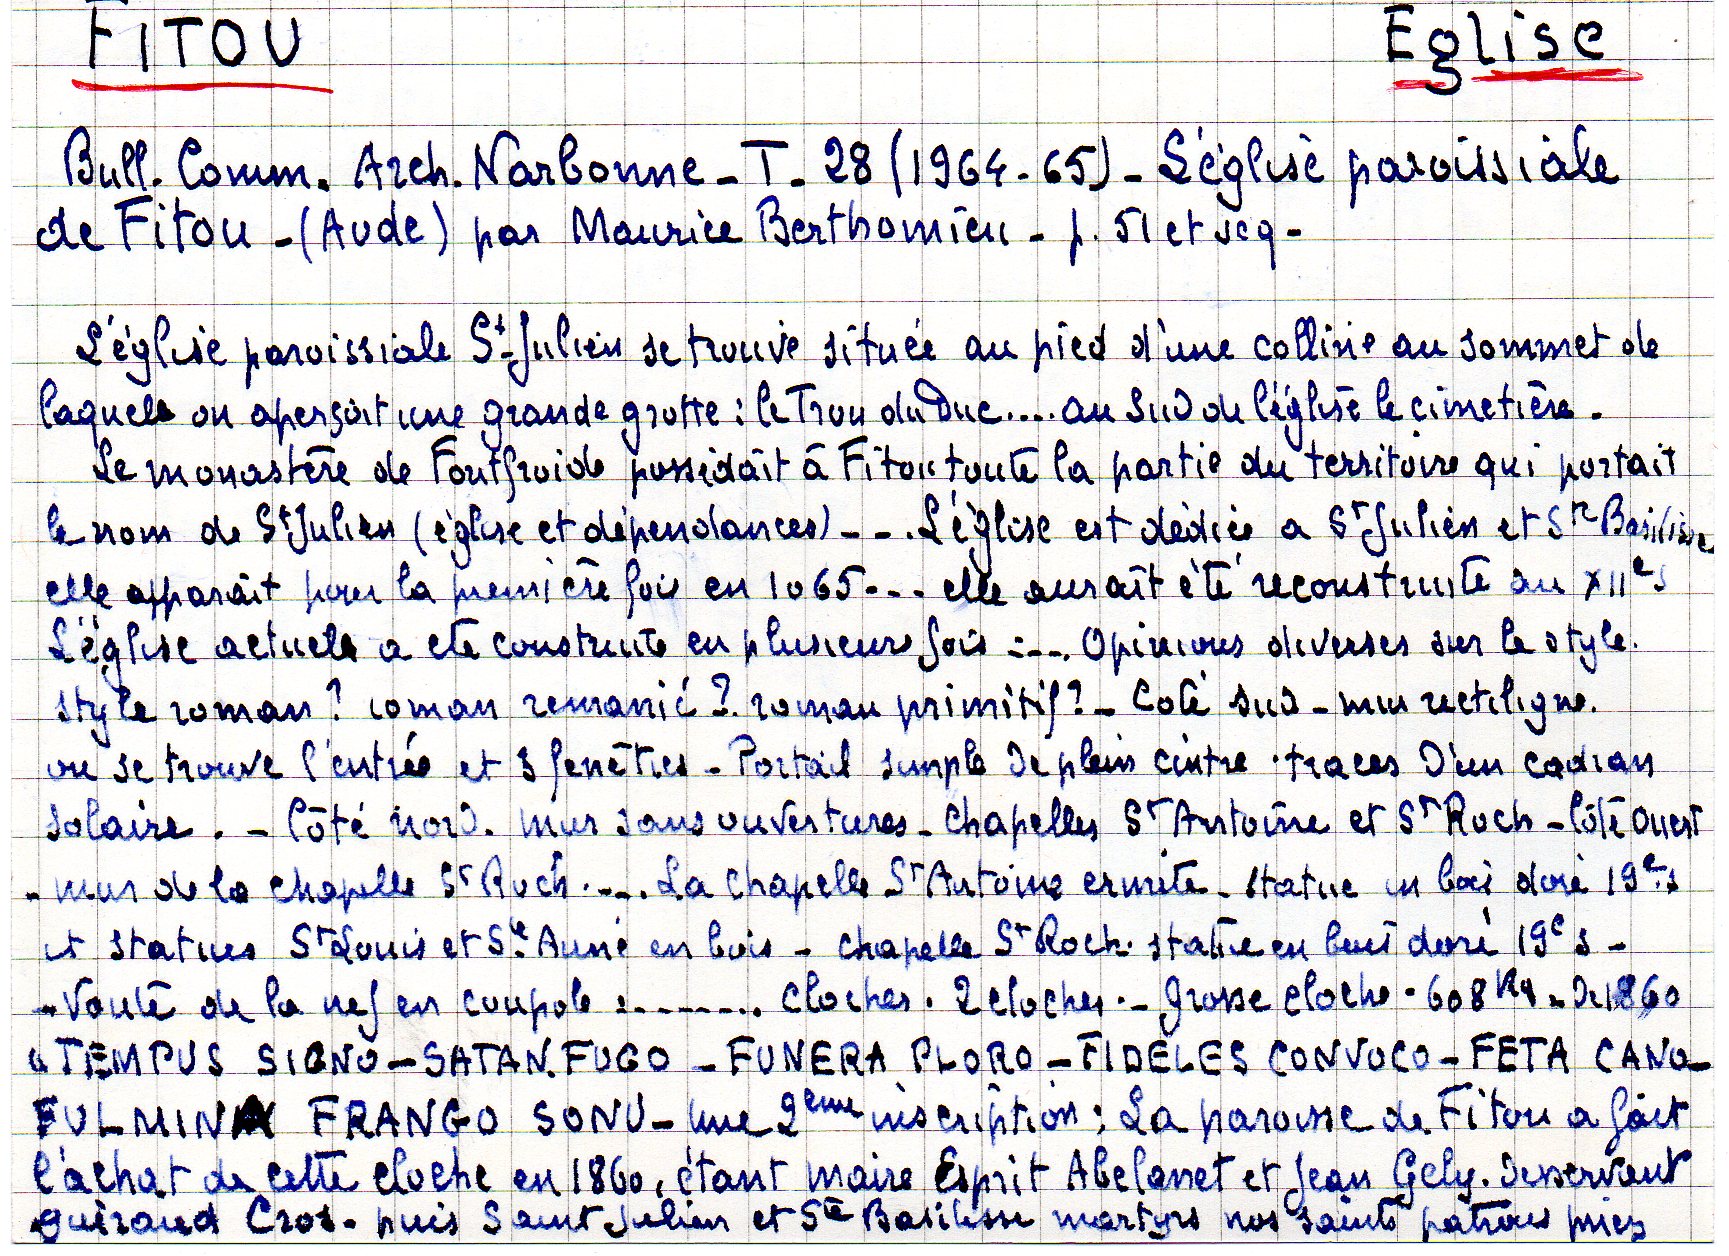 FITOU Eglise
Bull. Comm. Arch. Narbonne - T. 28 (1964-65) - L'église paroissiale
de Fitou - (Aude) par Maurice Berthomieu - p. 51 et seq -
L'église paroissiale St-Julien se trouve située au pied d'une colline au sommet de
laquelle on aperçoit une grande grotte : le Trou du Duc.... au Sud de l'église le cimetière.
Le monastère de Fontfroide possédait à Fitou toute la partie du territoire qui portait
le nom de St Julien (église et dépendances) - - -. L'église est dédiée a St Julien et Ste Basilisse
elle apparait pour la première fois en 1065 - - - elle aurait été reconstruite au XIIe s
L'église actuelle a ete construite en plusieurs fois :---. Opinions diverses sur le style.
style roman ? roman remanié ?. roman primitif ? - Coté sud - mur rectiligne.
ou se trouve l'entrée et 3 fenêtres - Portail simple de plein cintre . traces d'un cadran
solaire . - Côté nord. mur sans ouvertures - chapelles St Antoine et St Roch - Côté ouest
- mur de la chapelle St Roch . - - . La chapelle St Antoine ermite - statue en bois doré 19e s
et statues St Louis et Ste Anne en bois - chapelle St Roch. statue en bois doré 19e s -
- Voute de la nef en coupole :-------. Cloches . 2 cloches . - Grosse cloche . 608 Kg - De 1860
" TEMPUS SIGNO - SATAN. FUGO - FUNERA PLORO - FIDELES CONVOCO - FETA CANO -
FULMINA FRANGO SONU - Une 2eme inscription : La paroisse de Fitou a fait
l'achat de cette cloche en 1860, étant maire Esprit Abelanet et Jean Gely. Desservant
Guiraud Cros - puis Saint Julien et Ste Basilisse martyrs nos saints patrons priez